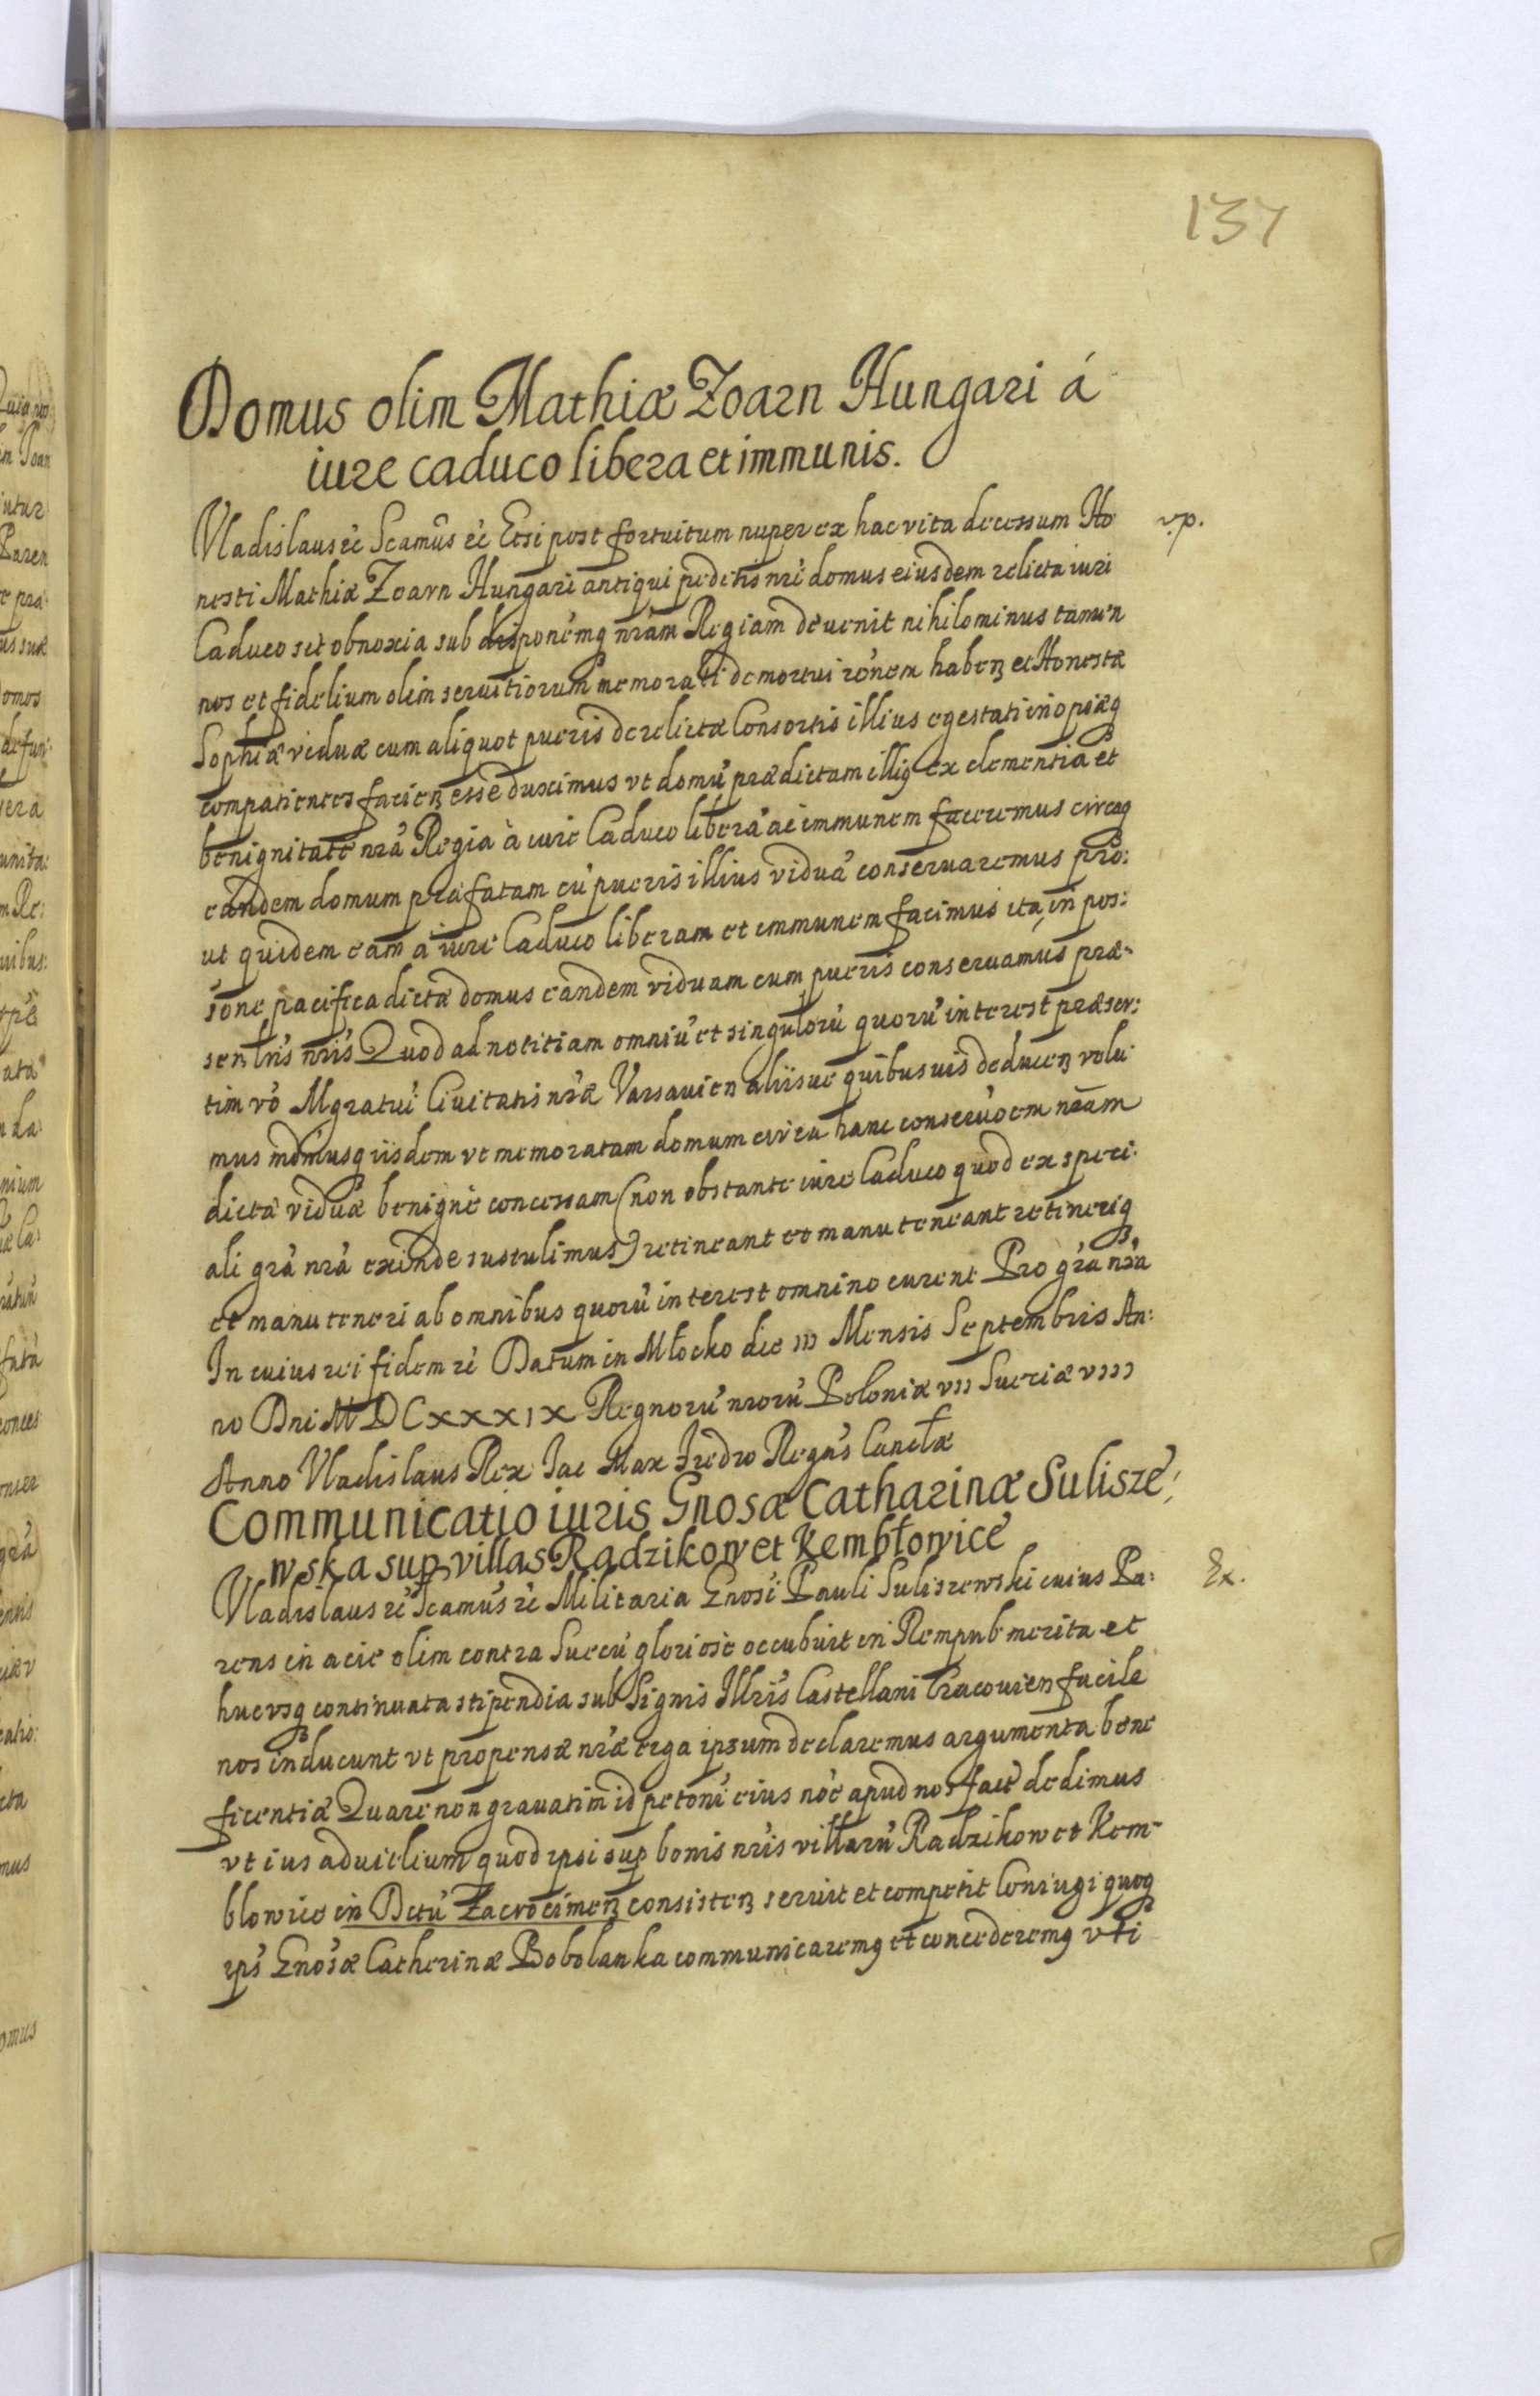 137
Domus olim Mathiæ Zoarn Hungari á
iure caduco libera et immunis.
Vladislaus ec̃ Scamũs ec̃ Etsi post fortuitum nuper ex hac vita decessum Ho
v.p.
nesti Mathiæ Zoarn Hungari antiqui peditis nrĩ domus eiusdem relicta iuri
Caduco sit obnoxia sub disponẽmq nrãm Regiam deuenit nihilominus tamen
nos et fidelium olim seruitiorum memorati demortui rõnem habenꝫ et Honestæ
Sophiæ viduæ cum aliquot pueris derelictæ Consortis illius egestati inopiæq
compatientes facienꝫ esse duximus vt domũ prædictam illiq ex clementia et
benignitate nrã Regia à iure Caduco liberã ac immunem faceremus circaq
eandem domum præfatam cũ pueris illius viduã conseruaremus pro:
ut quidem eam a iure Caduco liberam et immunem facimus ita, in pos:
sone pacifica dictæ domus eandem viduam cum pueris conseruamus præ-
sen lrĩs nrĩs Quod ad notitiam omniũ et singulorũ quorũ interest præser:
tim võ Mgratui Ciuitatis nrãæ Varsauien aliisue quibusuis deducenꝫ volu
mus mõmusq iisdem vt memoratam domum circa hanc conseruõem nrãm
dictæ viduæ benignè concessam (non obstante iure Caduco quod ex speci-
ali grã nrã exinde sustulimus) retineant et manuteneant retineriq
et manuteneri ab omnibus quorũ interest omnino curent Pro grã nrã
In cuius rei fidem ec̃ Datum in Młocko die III Mensis Septembris An:
no Dni MDCXXXIX Regnorũ nrorũ Poloniæ VII Sueciæ VIII
Anno Vladislaus Rex Iac Max Fredro Regñs Canclæ
Communicatio iuris Gnosæ Catharinæ Sulisze,
wska sup villas Radzikow et Kembłowice
Vladislaus ec̃ Scamũs ec̃ Militaria Gnosi Pauli Suliszewski cuius Pa:
Ex.
rens in acie olim contra Suecũ gloriosè occubuit in Rempub merita et
hucusq continuata stipendia sub Signis Illrĩs Castellani Cracouien facile
nos inducunt vt propensæ nrãæ erga ipsum declaremus argumenta bene
ficentiæ Quare non grauatim id petonĩ eius nõe apud nos factẽ dedimus
vt ius aduitlium quod ipsi sup bonis nrĩs villarũ Radzikow et Kem-
blowice in Dctũ Zacrocimenꝫ consistenꝫ seruit et competit Coniugi quoq
ips̃ Gnosæ Catherinæ Bobolanka communicaremq et concederemq vti